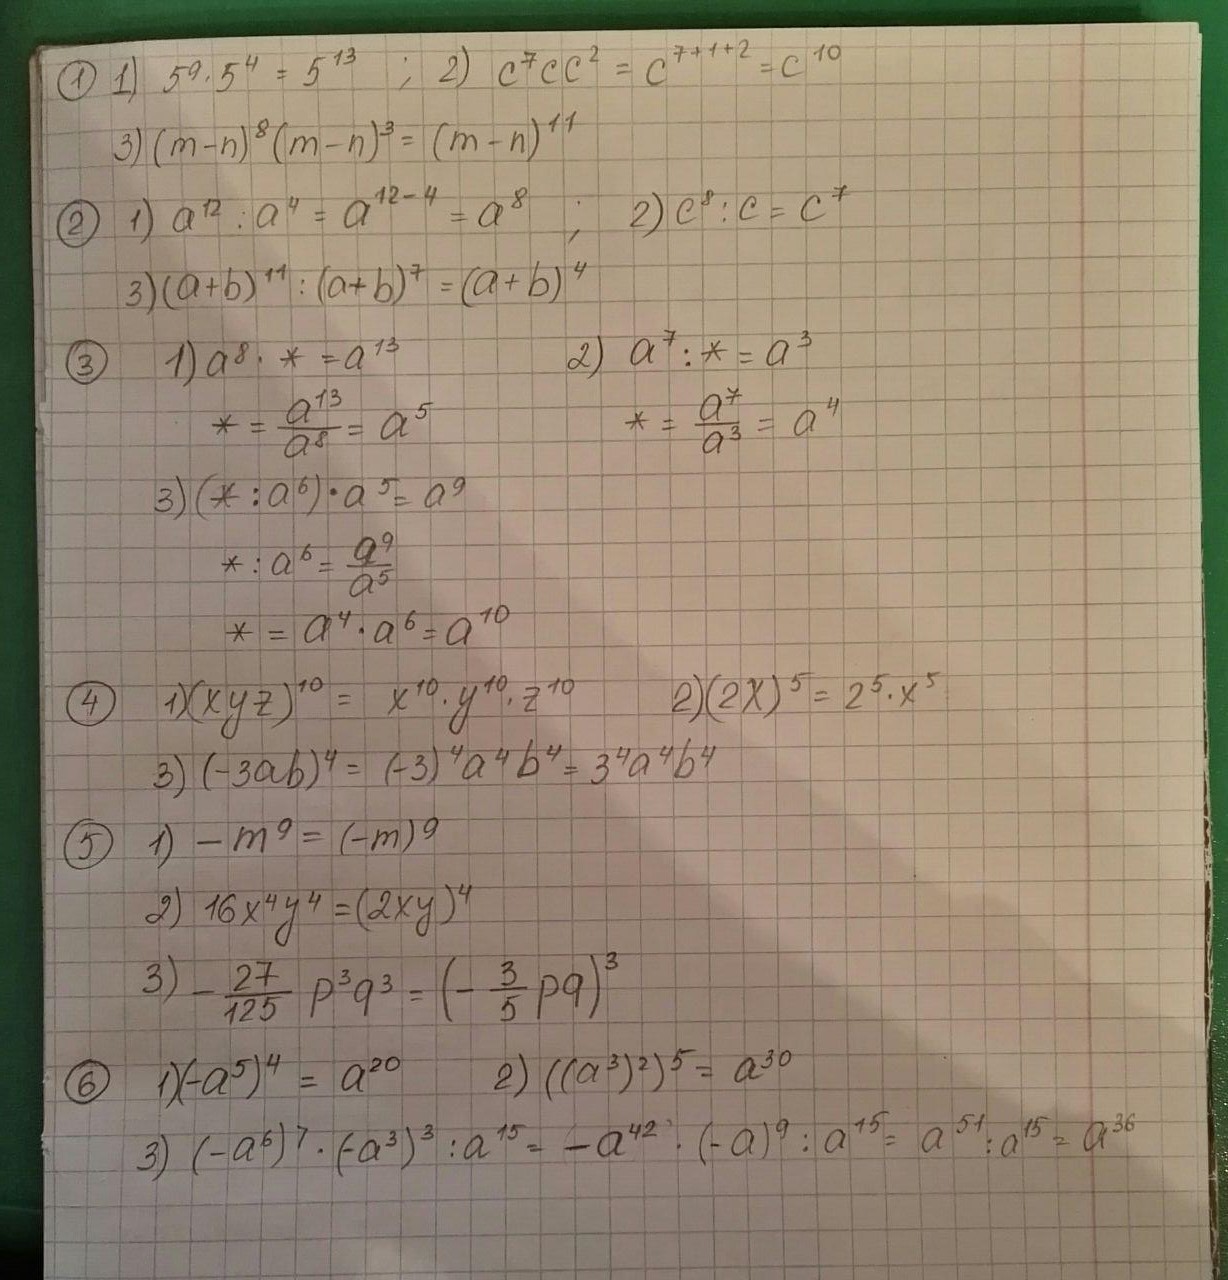 ① 1) 5⁹·5⁴ = 5¹³ ; 2) c⁷cc² = c⁷⁺¹⁺² = c¹⁰
3) (m-n)⁸(m-n)³ = (m-n)¹¹
② 1) a¹² : a⁴ = a¹²⁻⁴ = a⁸ ; 2) c⁸ : c = c⁷
3) (a+b)¹¹ : (a+b)⁷ = (a+b)⁴
③ 1) a⁸ · * = a¹³ 2) a⁷ : * = a³
* = a¹³/a⁸ = a⁵ * = a⁷/a³ = a⁴
3) (* : a⁶) · a⁵ = a⁹
* : a⁶ = a⁹/a⁵
* = a⁴ · a⁶ = a¹⁰
④ 1) (xyz)¹⁰ = x¹⁰ · y¹⁰ · z¹⁰ 2) (2x)⁵ = 2⁵ · x⁵
3) (-3ab)⁴ = (-3)⁴a⁴b⁴ = 3⁴a⁴b⁴
⑤ 1) -m⁹ = (-m)⁹
2) 16x⁴y⁴ = (2xy)⁴
3) - 27/125 p³q³ = (- 3/5 pq)³
⑥ 1) (-a⁵)⁴ = a²⁰ 2) ((a³)²)⁵ = a³⁰
3) (-a⁶)⁷ · (-a³)³ : a¹⁵ = -a⁴² · (-a)⁹ : a¹⁵ = a⁵¹ : a¹⁵ = a³⁶